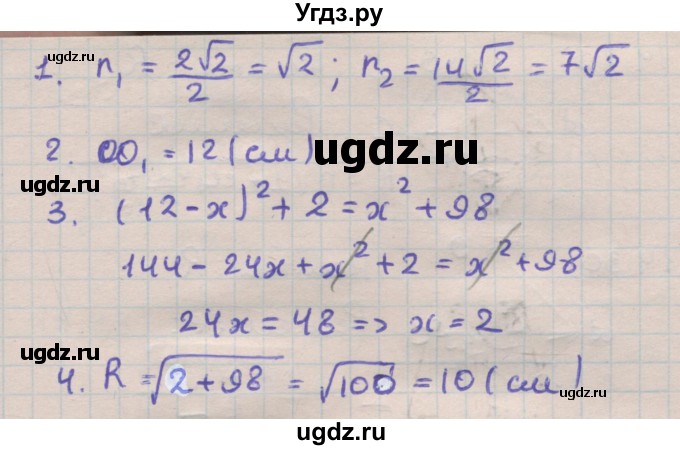 Угдз.ру
gdz.ru gdz.ru gdz.ru
1. r₁ = 2√2/2 = √2; r₂ = 14√2/2 = 7√2
2. OO₁ = 12 (см)
ugdz.ru
gdz.ru
3. (12 - x)² + 2 = x² + 98
144 - 24x + x² + 2 = x² + 98
24x = 48 => x = 2
ugdz.ru
gdz.ru
4. R = √2 + 98 = √100 = 10 (см)
gdz.ru
ugdz.ru